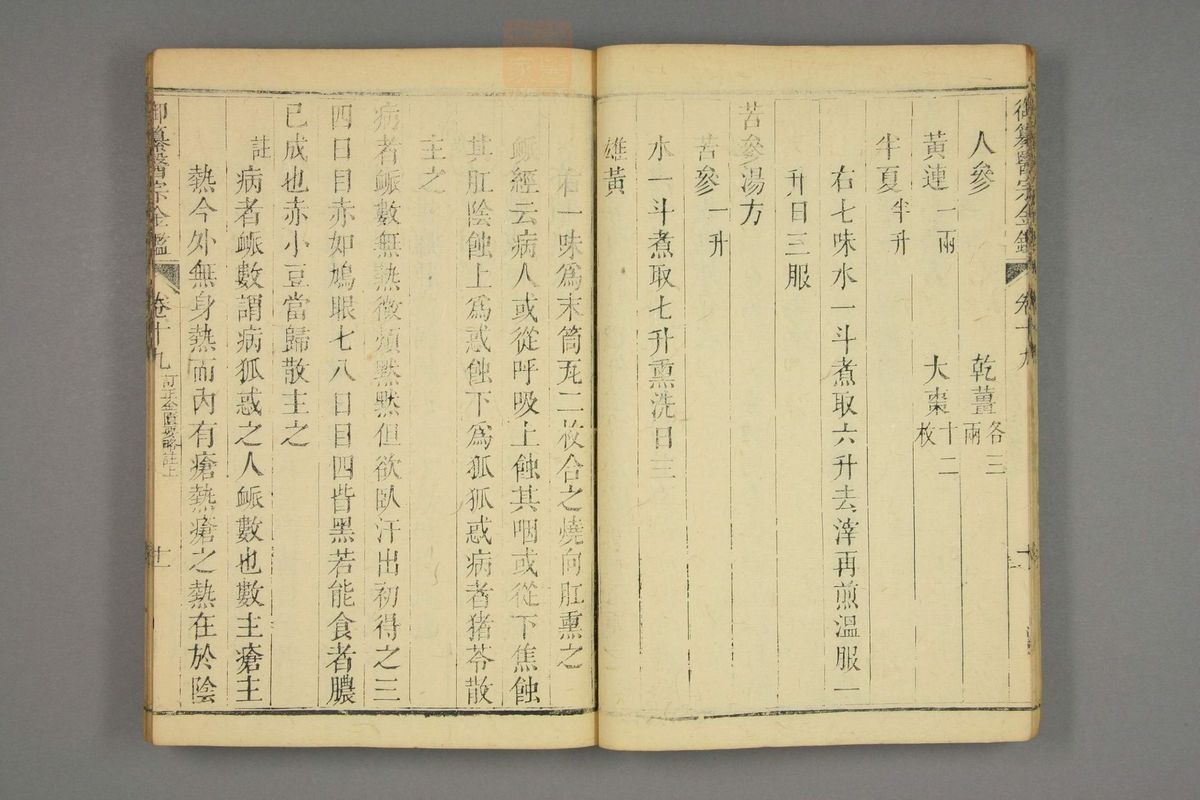 人參 乾薑各三兩
黃連一兩 大棗十二枚
半夏半升
右七味水一斗煮取六升去滓再煎溫服一
升日三服
苦參湯方
苦參一升
水一斗煮取七升熏洗日三
雄黃
右一味爲末筒瓦二枚合之燒向肛熏之
脈經云病人或從呼吸上蝕其咽或從下焦蝕
其肛陰蝕上爲惑蝕下爲狐狐惑病者猪苓散
主之
病者脈數無熱微煩默默但欲臥汗出初得之三
四日目赤如鳩眼七八日目四眥黑若能食者膿
已成也赤小豆當歸散主之
註 病者脈數謂病狐惑之人脈數也數主瘡主
熱今外無身熱而內有瘡熱瘡之熱在於陰
御纂醫宗金鑑 卷十九 訂正金匱要略註上